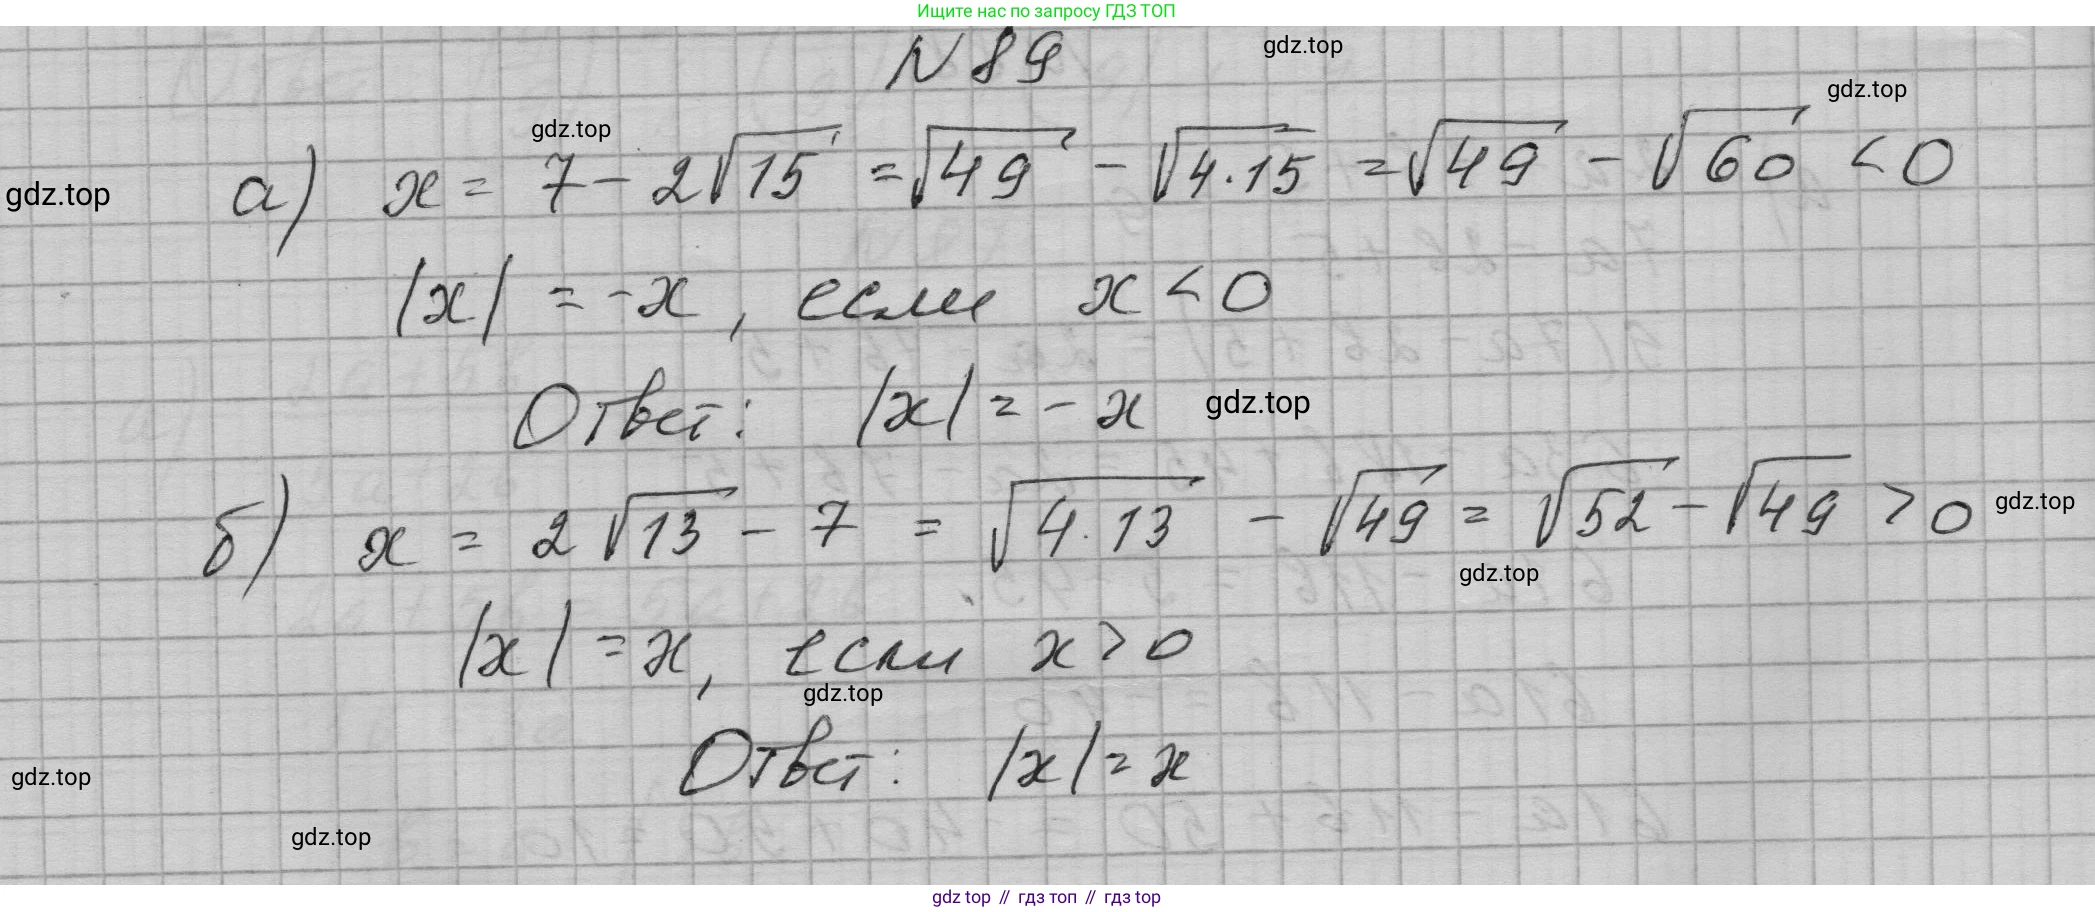 Ищите нас по запросу ГДЗ ТОП
N 89
gdz.top
gdz.top
gdz.top
gdz.top
а) x = 7 - 2√15 = √49 - √4·15 = √49 - √60 < 0
|x| = -x, если x < 0
Ответ: |x| = -x
gdz.top
б) x = 2√13 - 7 = √4·13 - √49 = √52 - √49 > 0
gdz.top
gdz.top
|x| = x, если x > 0
gdz.top
Ответ: |x| = x
gdz.top
gdz.top
gdz top // гдз топ // gdz top